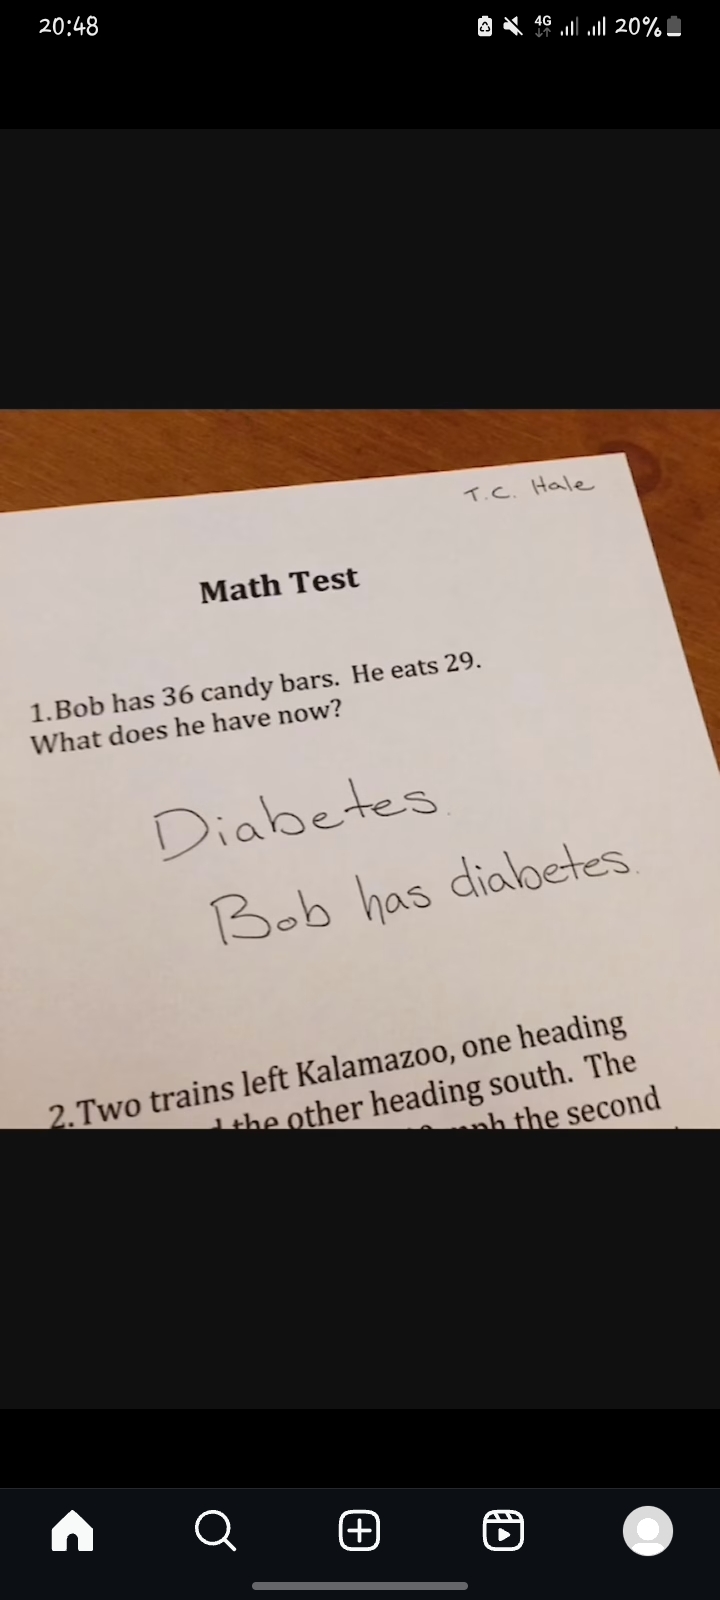 20:48
4G
20%
T.C. Hale
Math Test
1.Bob has 36 candy bars. He eats 29.
What does he have now?
Diabetes.
Bob has diabetes.
2.Two trains left Kalamazoo, one heading
the other heading south. The
mph the second